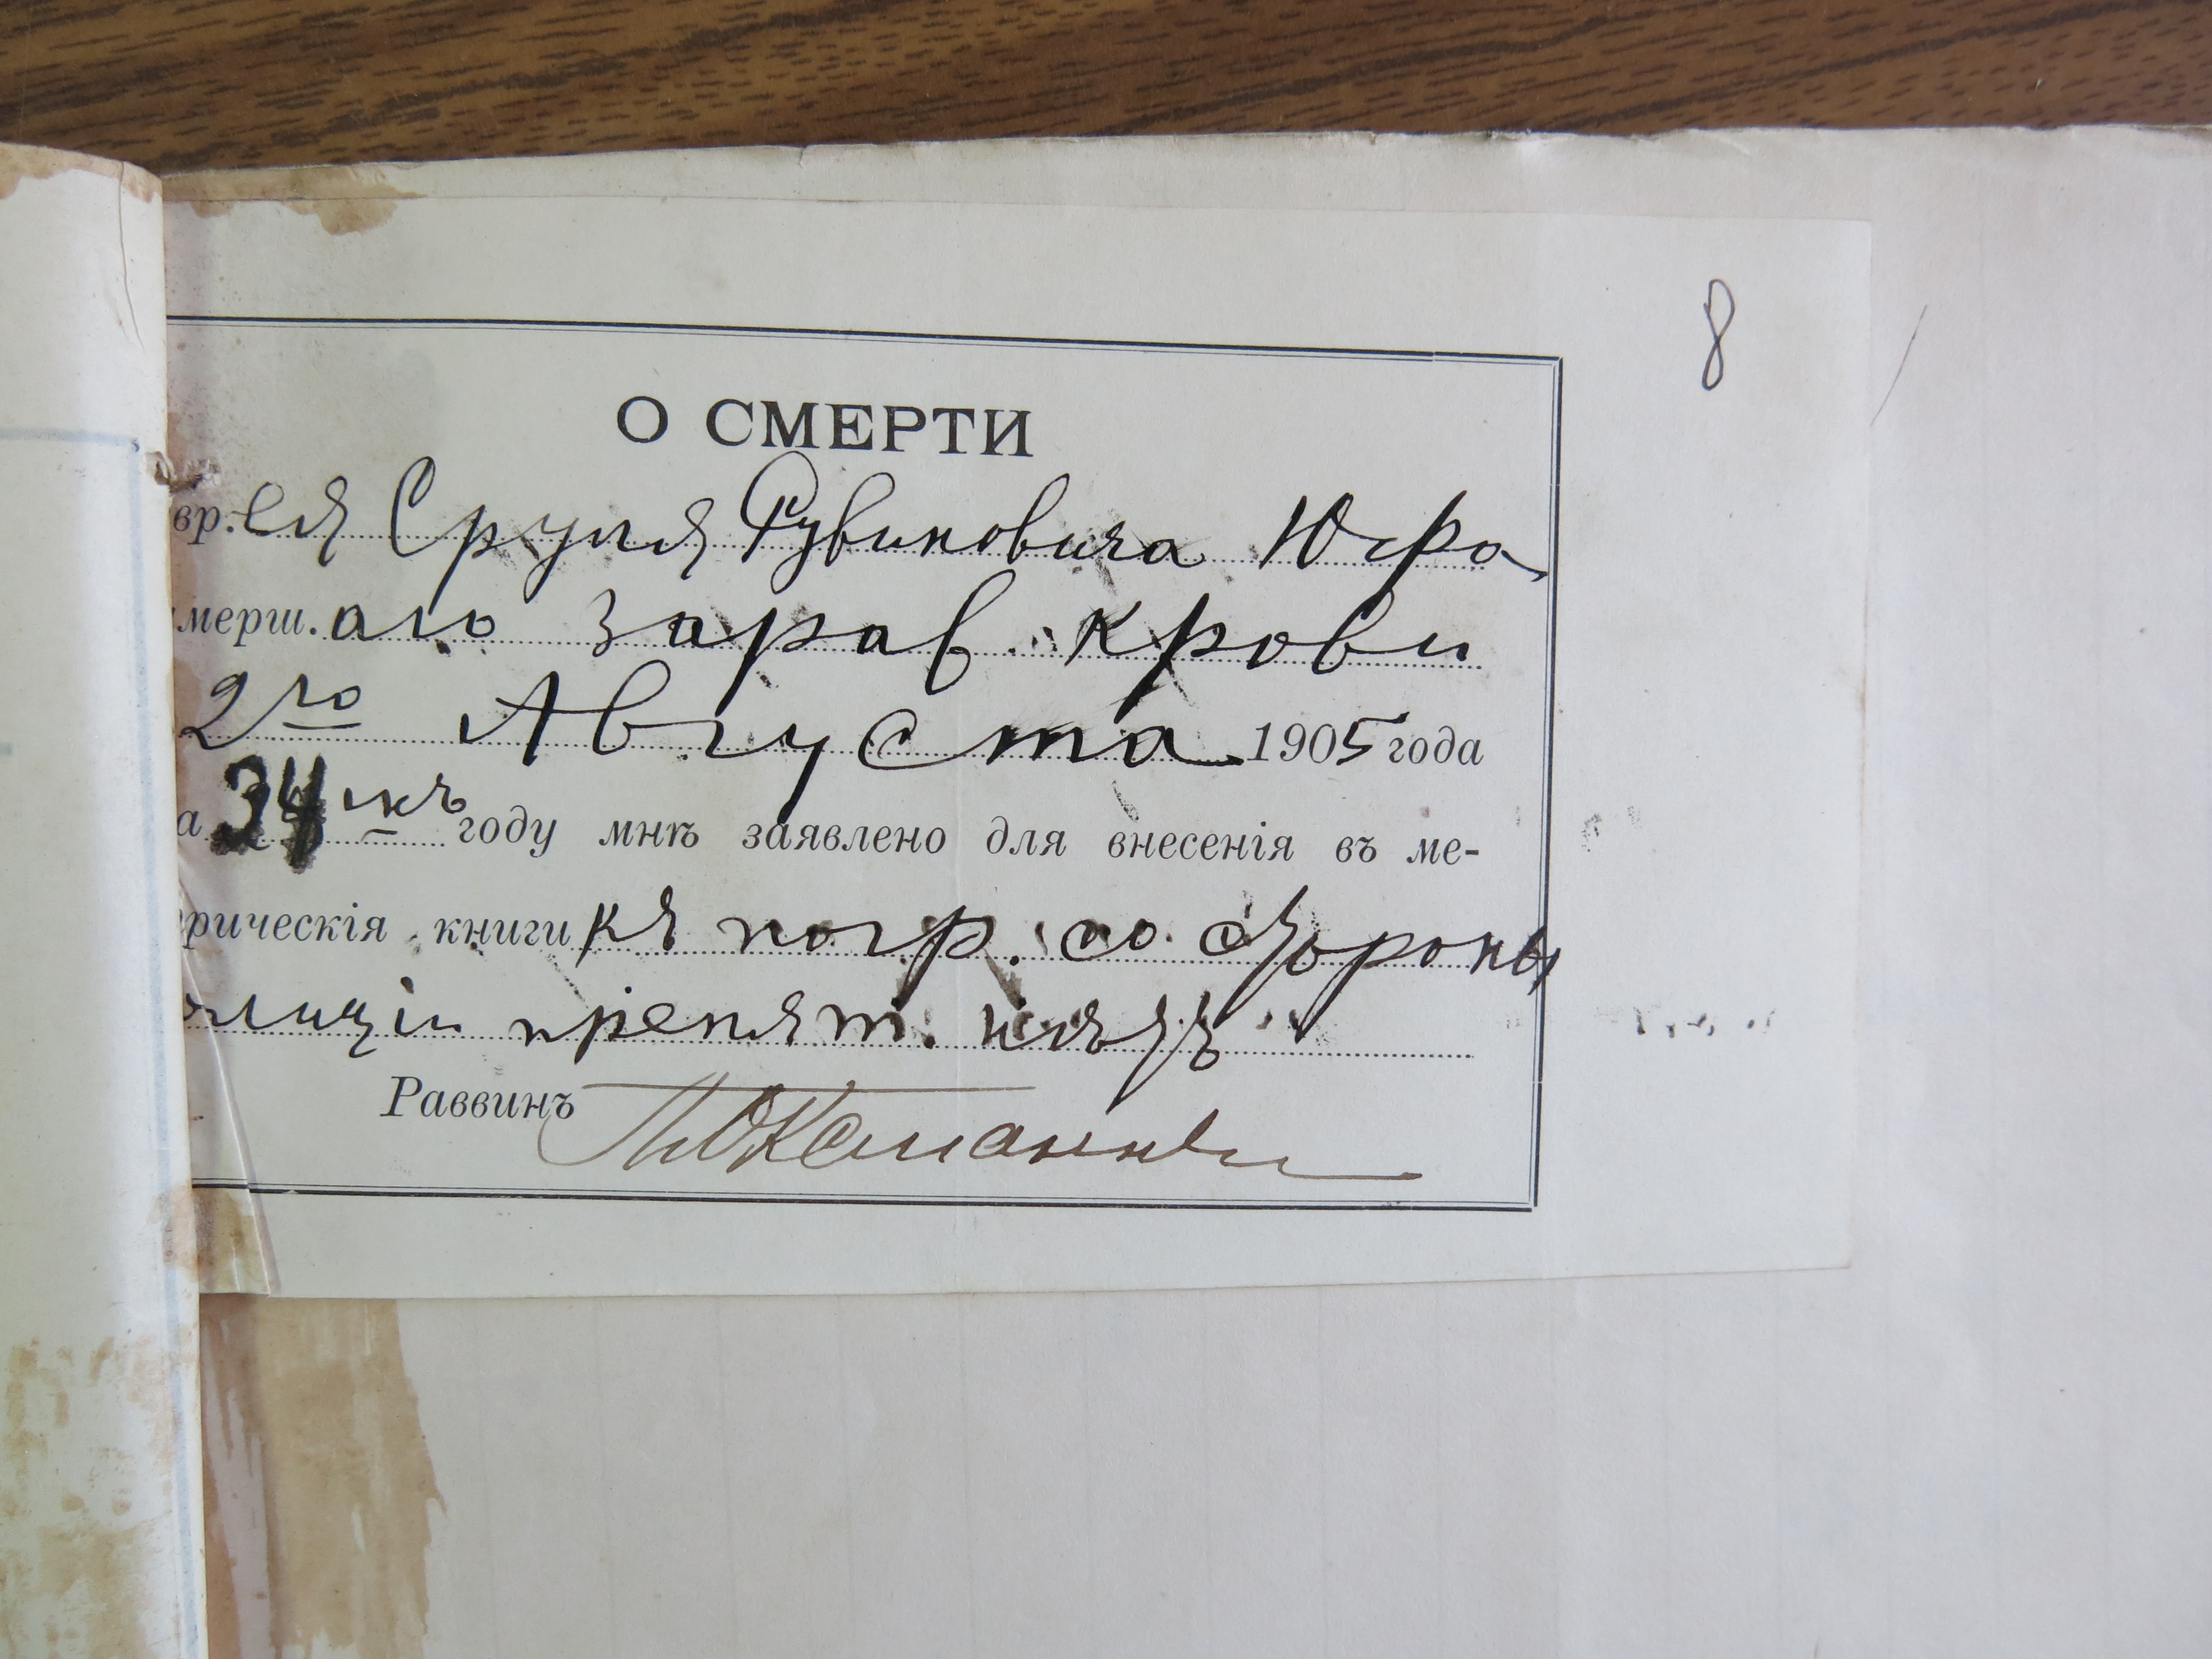 8
О СМЕРТИ
вр.ея Сруля Рувиновича Юфа
мерш.аго зараж. крови
2го Августа 1905 года
а 34мъ году мнѣ заявлено для внесенія въ ме-
рическія книги къ погр. со стороны
олиціи препят. нѣтъ
Раввинъ